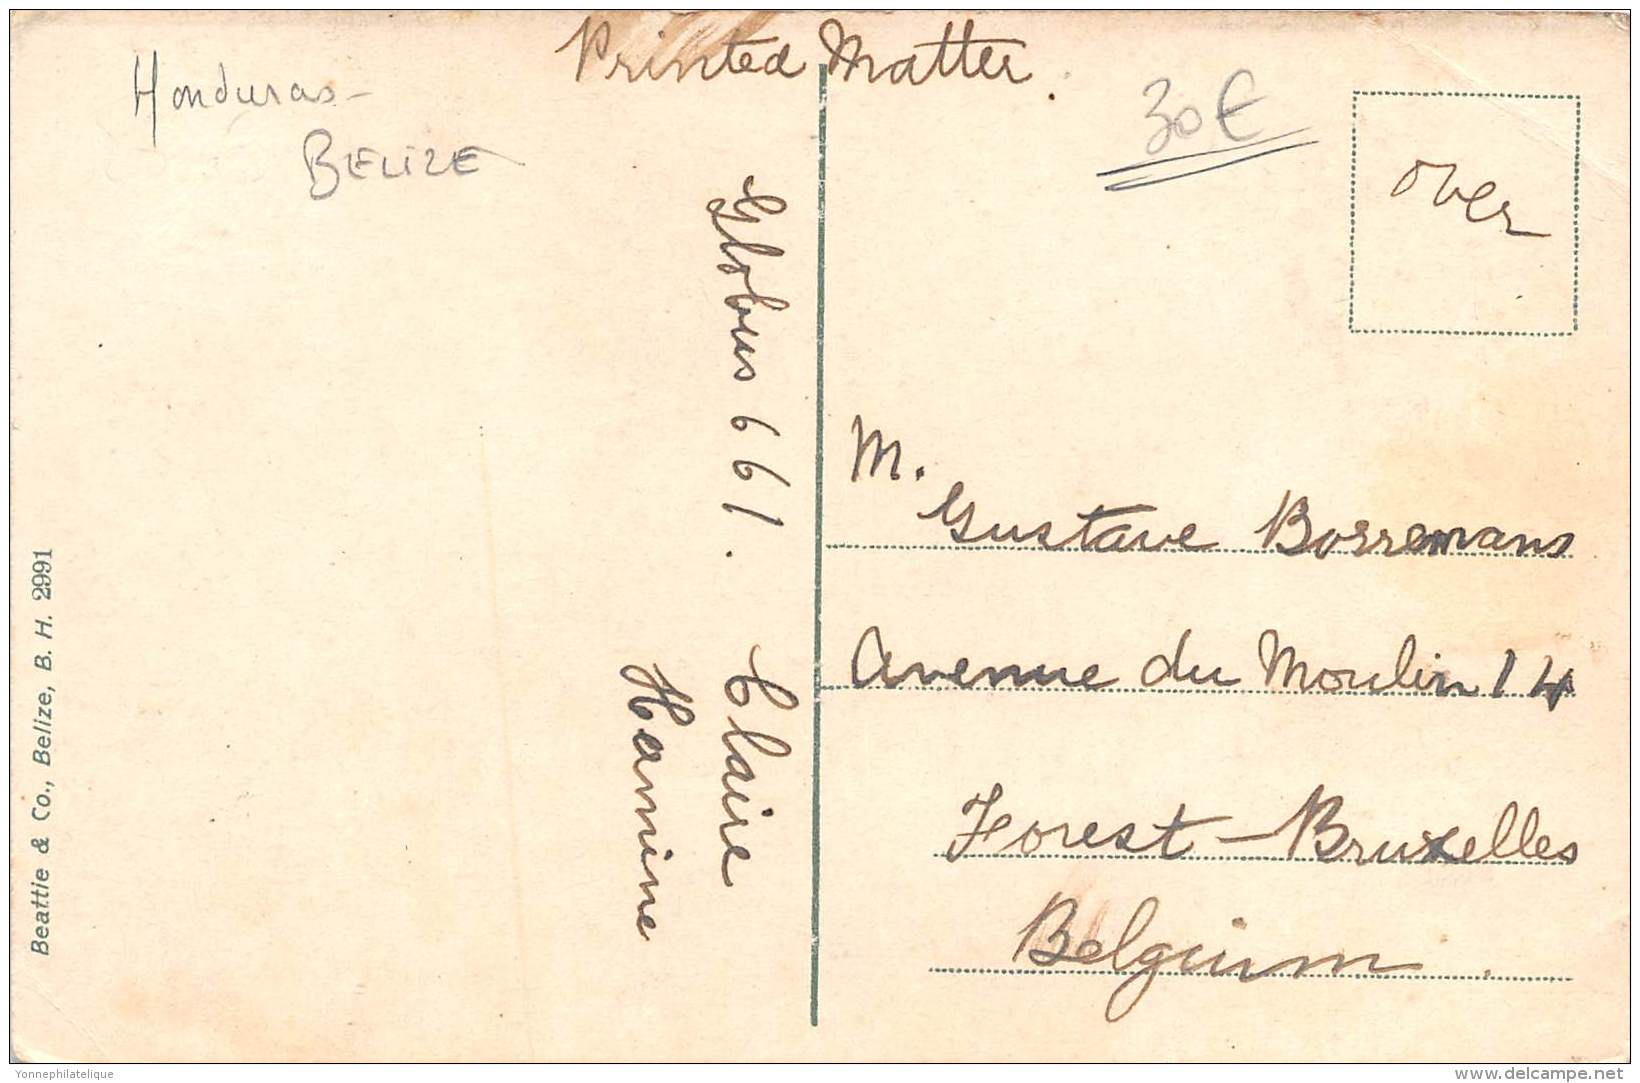 Printed Matter.
Honduras -
BELIZE
30€
over
Globus 661.
Claire
Hamine
M.
Gustave Borremans
Avenue du Moulin 14
Forest - Bruxelles
Belgium.
Beattie & Co., Belize, B. H. 2991
Yonnephilatelique
delcampe.net